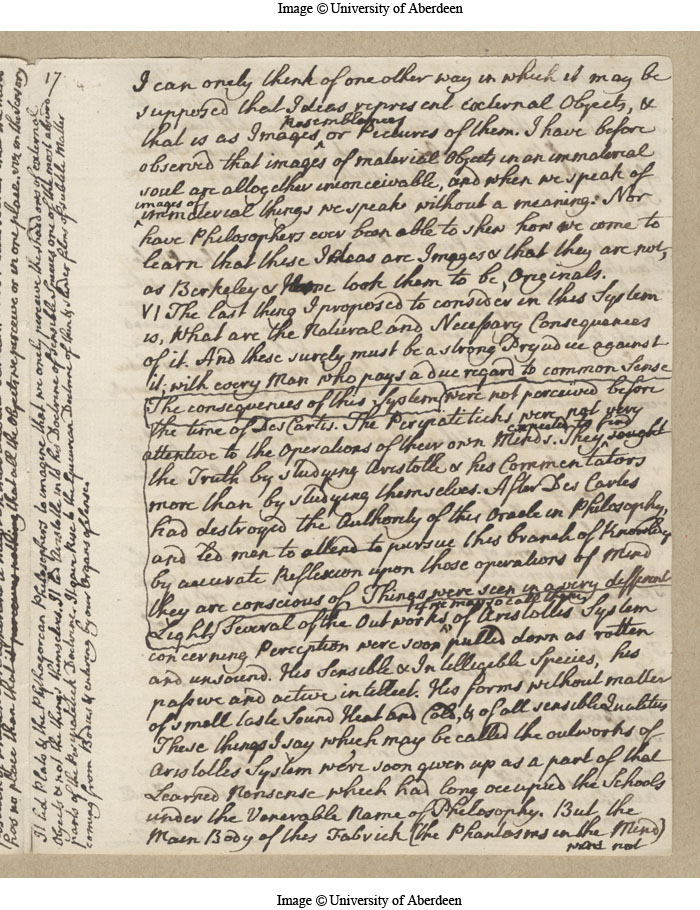 Image © University of Aberdeen
17
I can onely think of one other way in which it may be
supposed that Ideas represent external Objects, &
Resemblances
that is as Images ‸ or Pictures of them. I have before
observed that images of material Objects in an immaterial
soul are alltogether inconceivable, and when we speak of
images of
‸ immaterial things we speak without a meaning: Nor
have Philosophers ever been able to shew how we come to
learn that these Ideas are Images & that they are not,
as Berkeley & Hume took them to be, Originals.
VI The last thing I proposed to consider in this System
is, What are the Natural and Necessary Consequences
of it. And these surely must be a strong Prejudice against
it, with every Man who pays a due regard to common Sense
The consequences of this System were not perceived before
the time of Des Cartis. The Peripateticks were not very
attentive to the Operations of their own Minds. They sought
expected to find
the Truth by studying Aristotle & his Commentators
more than by studying themselves. After Des Cartes
had destroyed the Authority of this Oracle in Philosophy,
and led men to attend to pursue this branch of Knowledge
by accurate Reflexion upon those operations of Mind
they are conscious of Things were seen in a very different
if we may so call them
Light. Several of the Outworks ‸ of Aristotles System
concerning Perception were soon pulled down as rotten
and unsound. His Sensible & Intelligible Species, his
passive and active intellect. His forms without matter
of smell taste Sound Heat and Cold, & of all sensible Qualities
These things I say which may be called the outworks of
Aristotles System were soon given up as a part of that
Learned Nonsense which had long occupied the Schools
under the Venerable Name of Philosophy. But the
Main Body of this Fabrick (the Phantasms in the Mind)
were not
has no place than that it perceives nothing that all the Objects we perceive are in one place, viz in the Sensory
It led Plato & the Pythagorean Philosophers to imagine that we onely perceive the shadows of external
Objects & not the things themselves. It led Aristotle into his Doctrine of sensible Species one of the most absurd
parts of the Peripatetick Doctrine. It gave Rise to the Epicurean Doctrine of thin & slender films of subtile Matter
coming from Bodies & entering by our Organs of Sense.
Image © University of Aberdeen